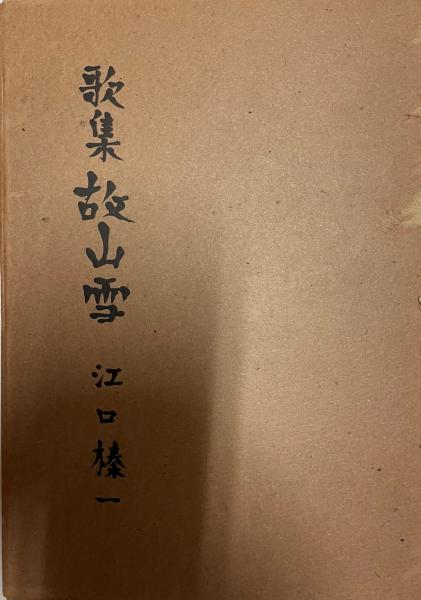 歌集 故山雪 江口榛一